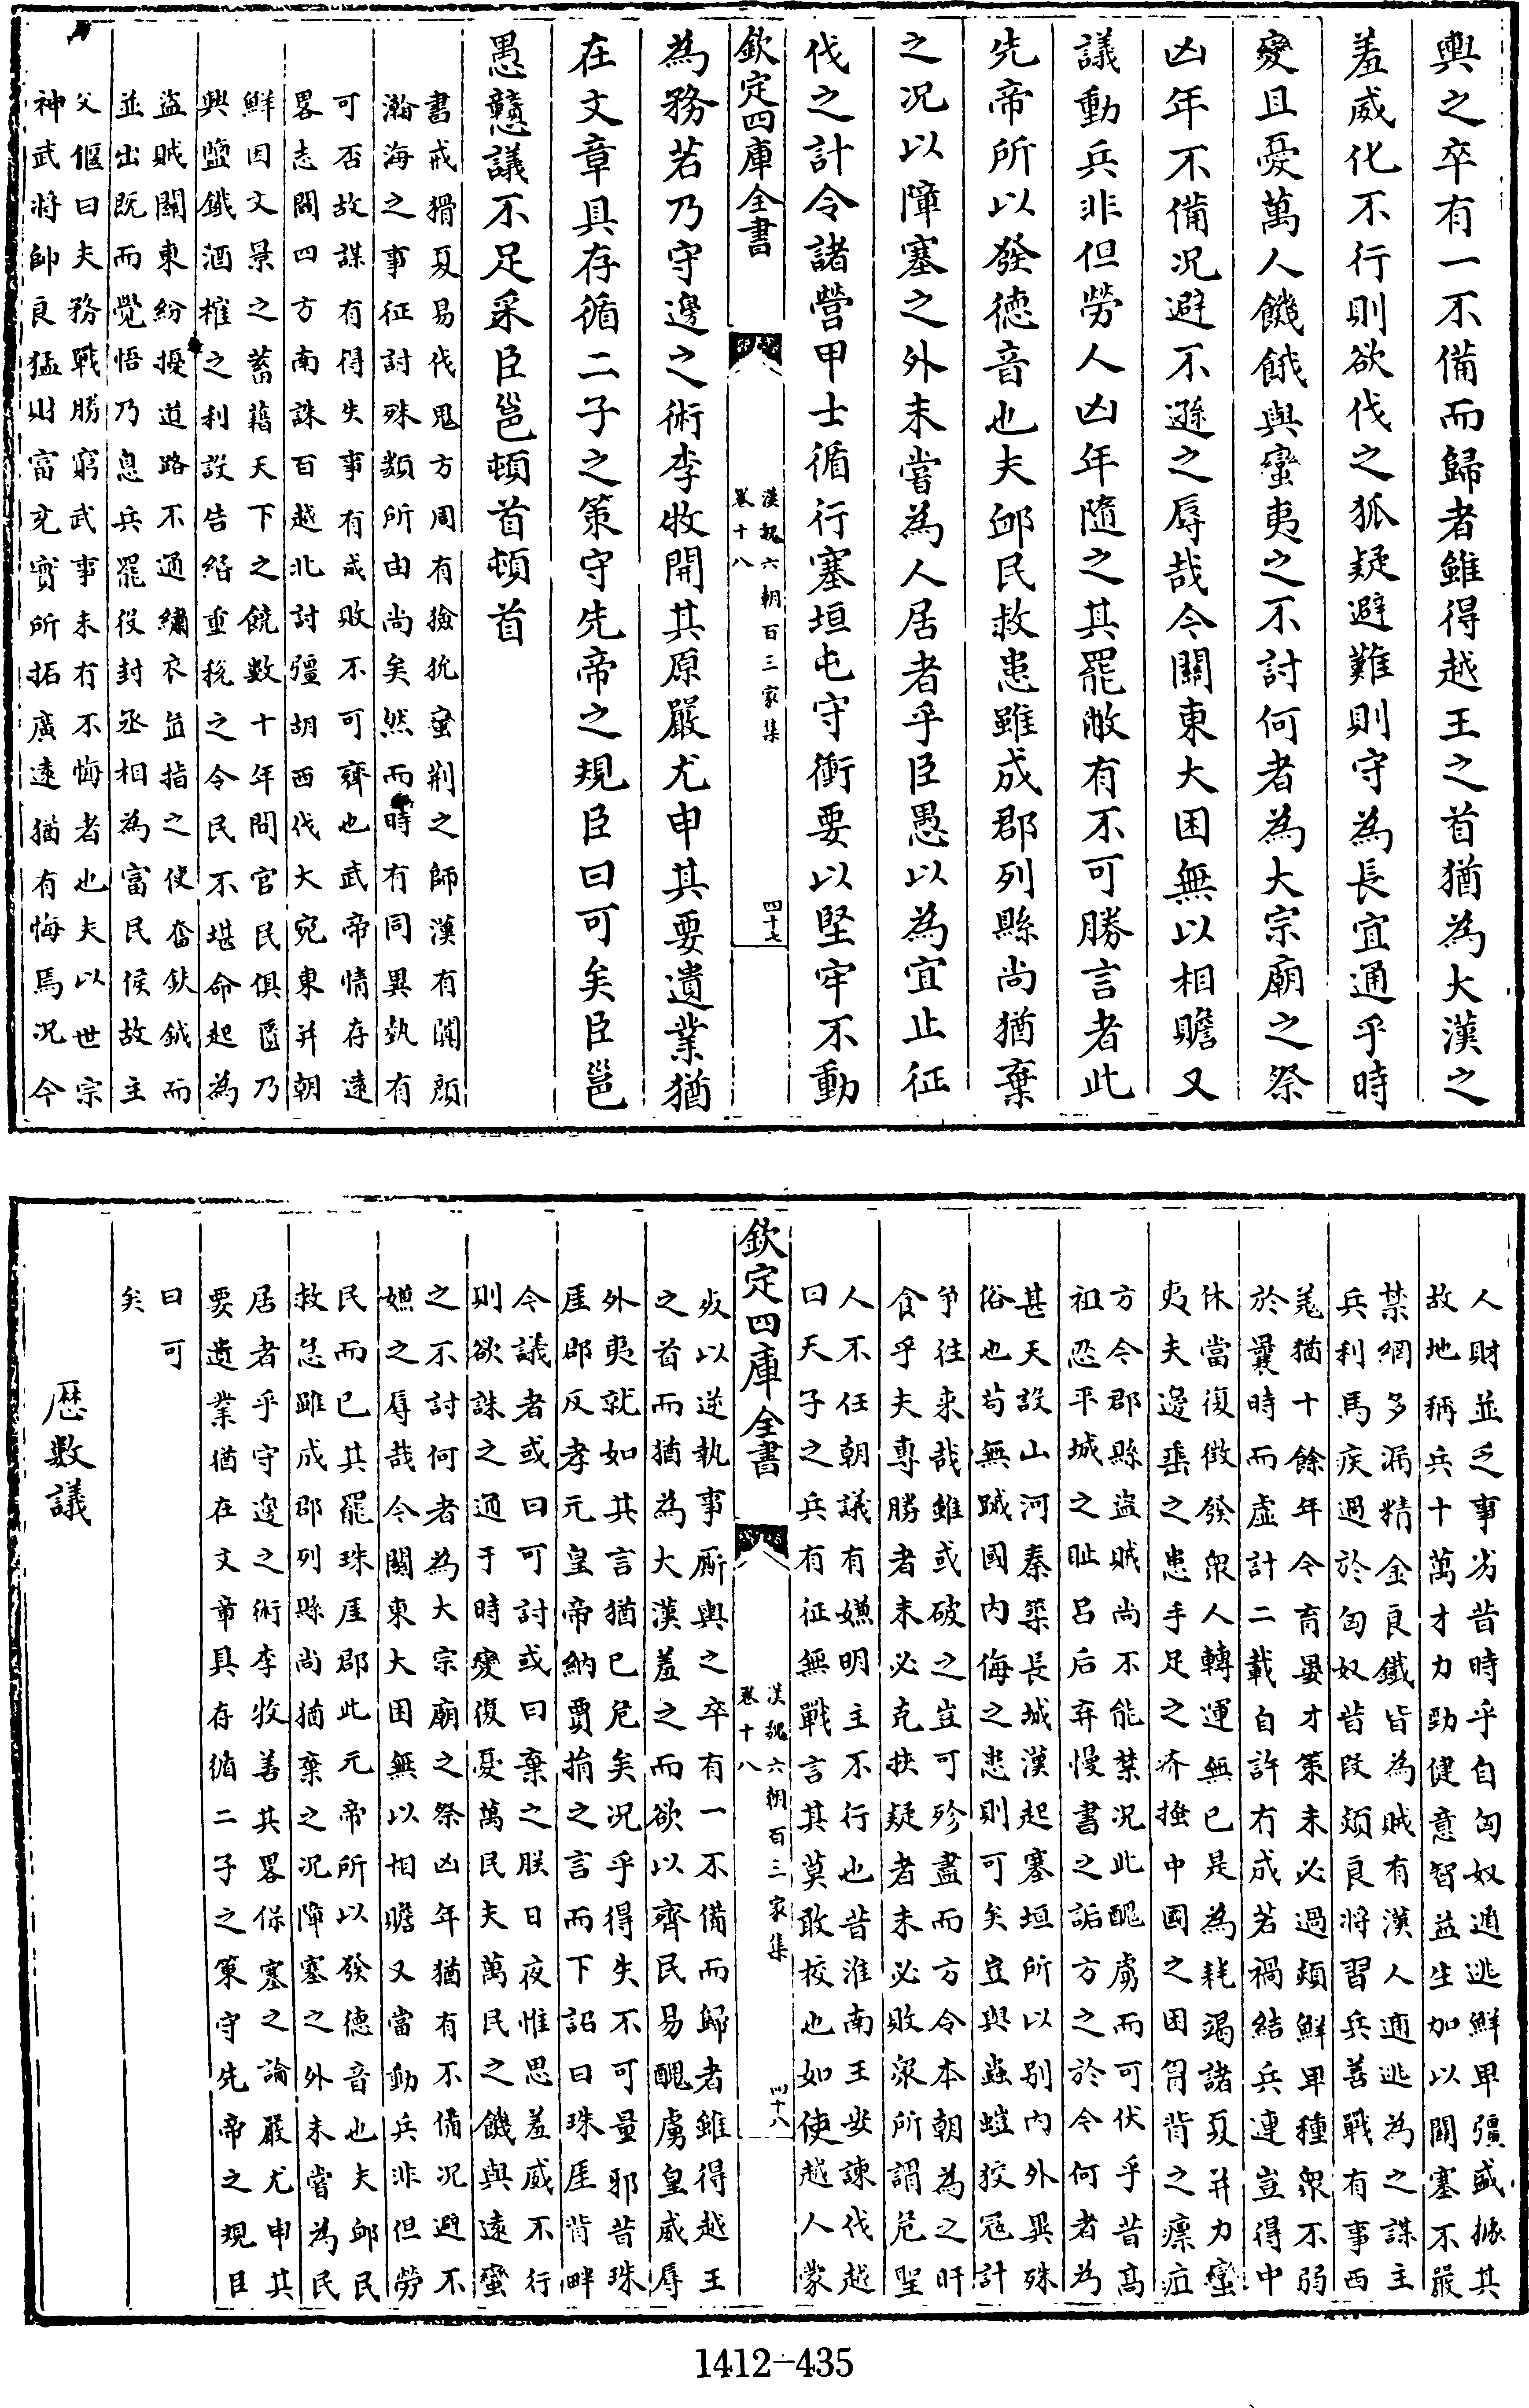 輿之卒有一不備而歸者雖得越王之首猶為大漢之
羞威化不行則欲伐之狐疑避難則守為長宜通乎時
變且憂萬人饑餓與蠻夷之不討何者為大宗廟之祭
凶年不備况避不遜之辱哉今關東大困無以相贍又
議動兵非但勞人凶年隨之其罷敝有不可勝言者此
先帝所以發德音也夫邮民救患雖成郡列縣尚猶棄
之况以障塞之外未嘗為人居者乎臣愚以為宜止征
伐之計令諸營甲士循行塞垣屯守衝要以堅牢不動
欽定四庫全書
漢魏六朝百三家集
卷十八
四十七
為務若乃守邊之術李牧開其原嚴尤申其要遺業猶
在文章具存循二子之策守先帝之規臣曰可矣臣邕
愚戇議不足采臣邕頓首頓首
書戒猾夏易伐鬼方周有獫狁蠻荆之師漢有闐顔
瀚海之事征討殊類所由尚矣然而時有同異執有
可否故謀有得失事有成敗不可齊也武帝情存遠
畧志闢四方南誅百越北討彊胡西伐大宛東并朝
鮮因文景之蓄藉天下之饒數十年間官民俱匱乃
興鹽鐵酒榷之利設告緡重稅之令民不堪命起為
盜賊關東紛擾道路不通繡衣直指之使奮鈇鉞而
並出既而覺悟乃息兵罷役封丞相為富民侯故主
父偃曰夫務戰勝窮武事未有不悔者也夫以世宗
神武將帥良猛財富充實所拓廣遠猶有悔焉况今
人財並乏事劣昔時乎自匈奴遁逃鮮卑彊盛據其
故地稱兵十萬才力勁健意智益生加以關塞不嚴
禁網多漏精金良鐵皆為賊有漢人逋逃為之謀主
兵利馬疾過於匈奴昔段熲良將習兵善戰有事西
羌猶十餘年今育晏才策未必過熲鮮卑種衆不弱
於曩時而虛計二載自許有成若禍結兵連豈得中
休當復徵發衆人轉運無已是為耗竭諸夏并力蠻
夷夫邊垂之患手足之疥搔中國之困胷背之瘭疽
方今郡縣盜賊尚不能禁况此醜虜而可伏乎昔高
祖忍平城之恥呂后弃慢書之詬方之於今何者為
甚天設山河秦築長城漢起塞垣所以别内外異殊
俗也苟無蹴國内侮之患則可矣豈與蟲螘狡冦計
爭往來哉雖或破之豈可殄盡而方令本朝為之旰
食乎夫專勝者未必克挾疑者未必敗衆所謂危聖
人不任朝議有嫌明主不行也昔淮南王安諫伐越
曰天子之兵有征無戰言其莫敢校也如使越人蒙
欽定四庫全書
漢魏六朝百三家集
卷十八
四十八
死以逆執事厮輿之卒有一不備而歸者雖得越王
之首而猶為大漢羞之而欲以齊民易醜虜皇威辱
外夷就如其言猶已危矣况乎得失不可量邪昔珠
厓郡反孝元皇帝納賈捐之言而下詔曰珠厓背畔
今議者或曰可討或曰棄之朕日夜惟思羞威不行
則欲誅之通于時變復憂萬民夫萬民之饑與遠蠻
之不討何者為大宗廟之祭凶年猶有不備况避不
嫌之辱哉今關東大困無以相贍又當動兵非但勞
民而已其罷珠厓郡此元帝所以發德音也夫邮民
救急雖成郡列縣尚猶棄之况障塞之外未嘗為民
居者乎守邊之術李牧善其畧保塞之論嚴尤申其
要遺業猶在文章具存循二子之策守先帝之規臣
曰可
矣
厯數議
1412-435